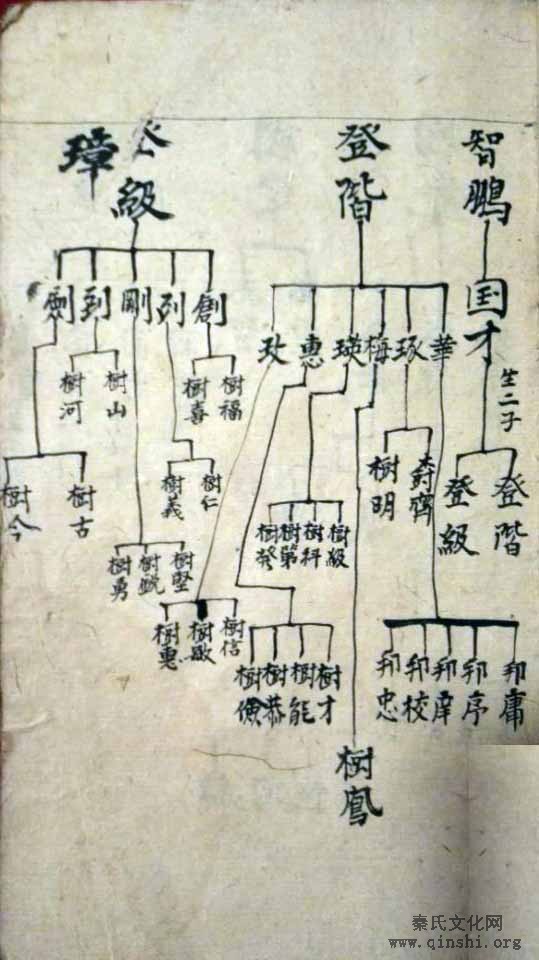 智鵬
国才
生二子
登階
登級
登階
華
琢
梅
瑛
惠
玫
邦庸
邦序
邦庠
邦校
邦忠
樹齊
樹明
樹鳳
樹級
樹科
樹第
樹發
樹才
樹能
樹恭
樹儉
樹信
樹敏
樹惠
登級
璋
創
列
剛
到
劍
樹福
樹喜
樹仁
樹義
樹堅
樹銳
樹勇
樹山
樹河
樹古
樹今
秦氏文化网
www.qinshi.org